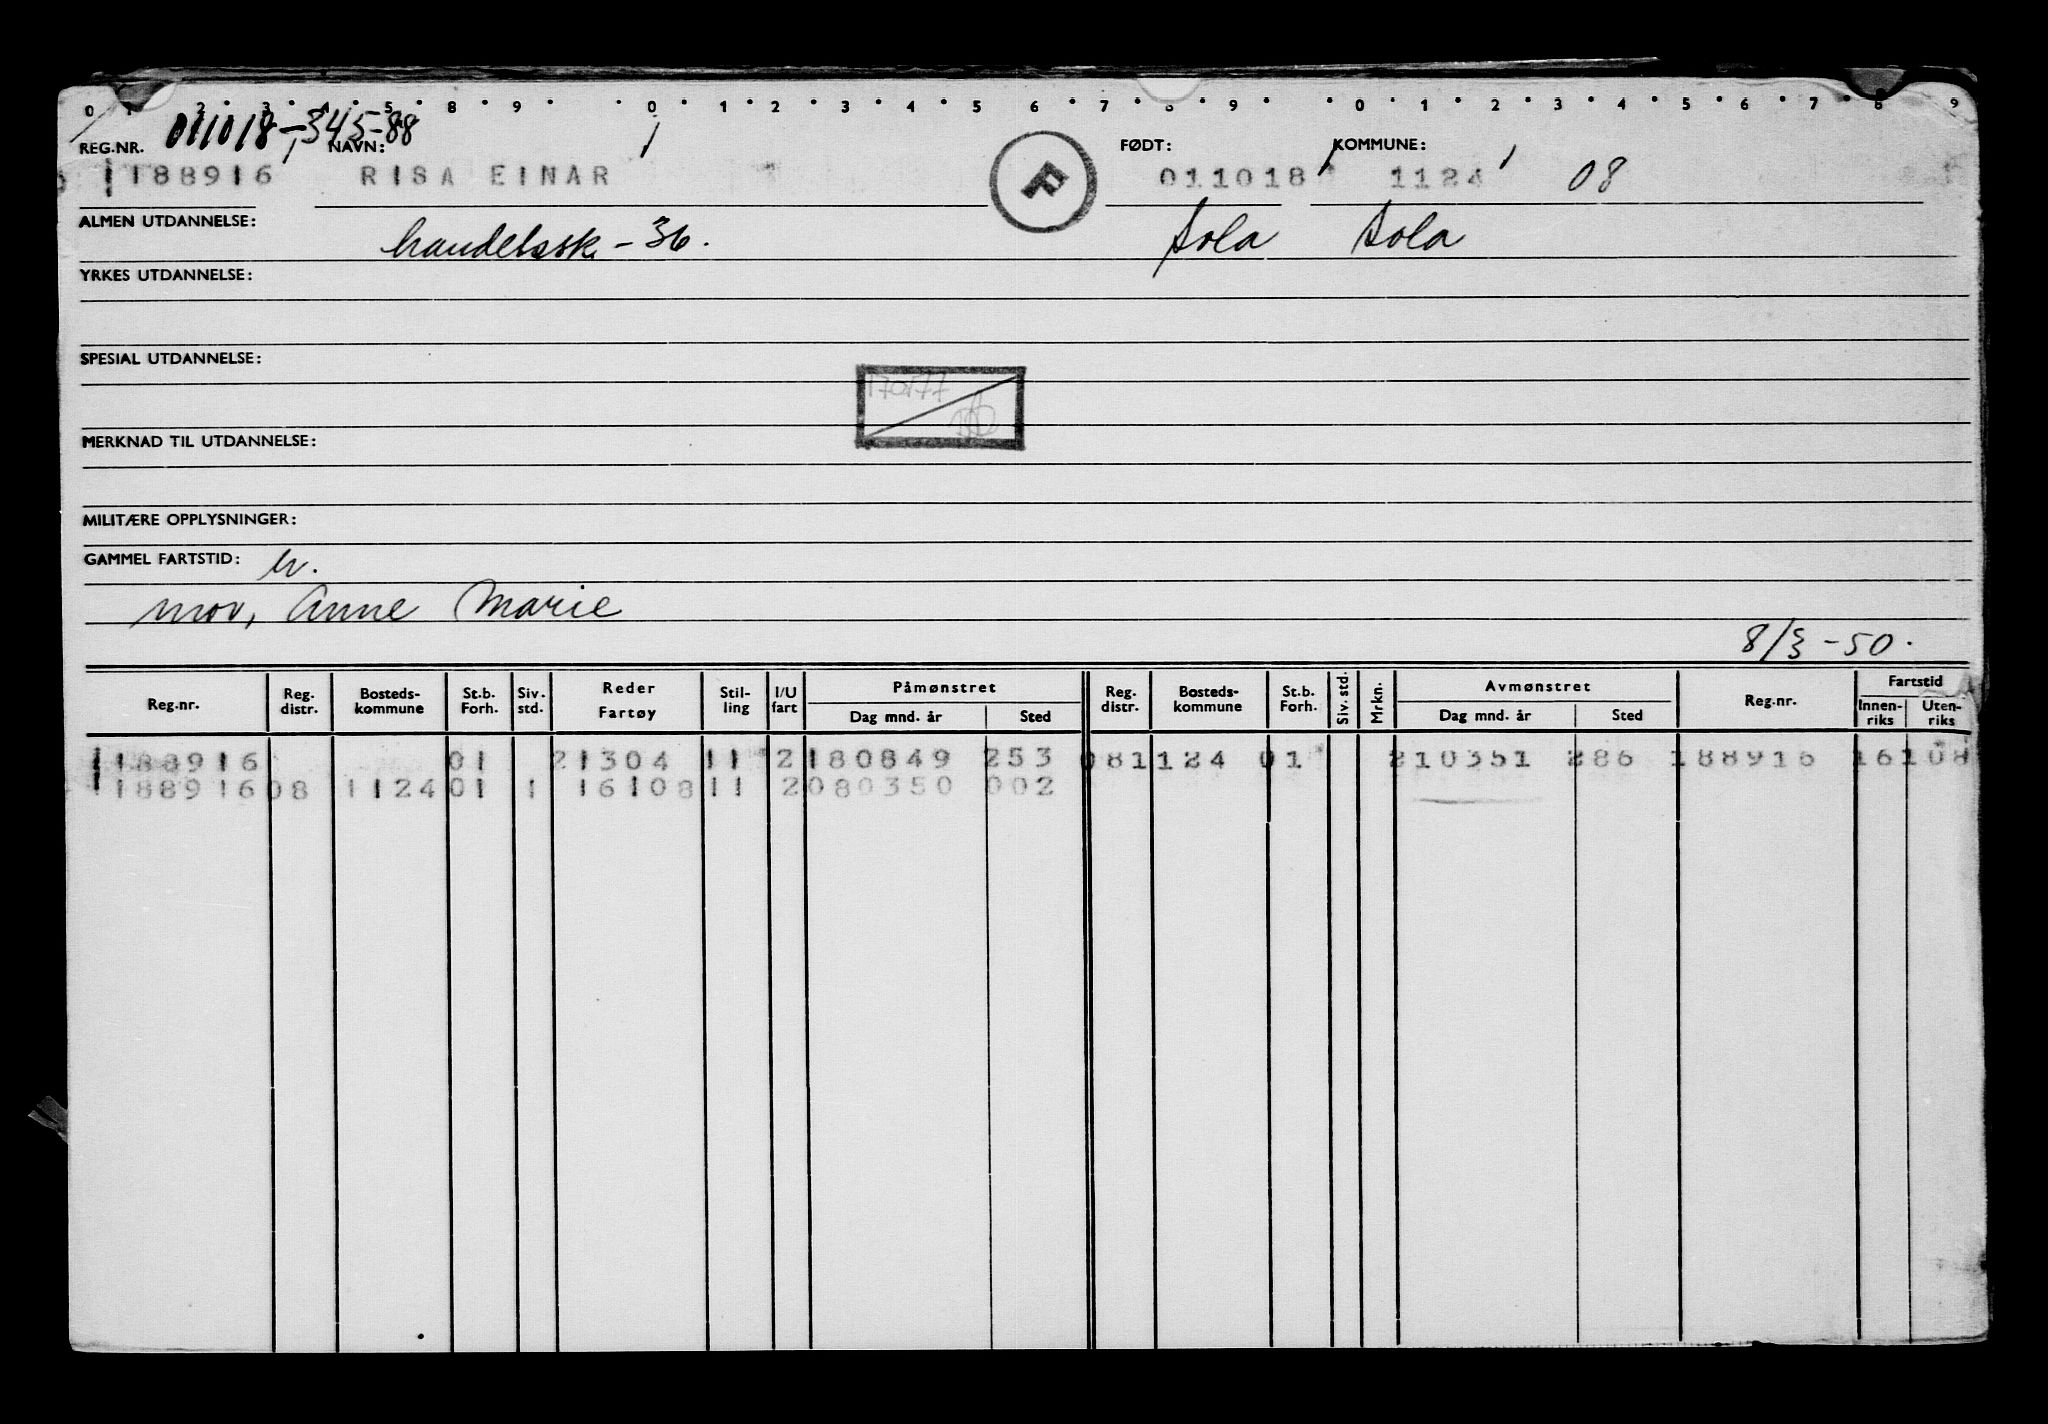 0 1 2 3 4 5 8 9 0 1 2 3 4 5 6 7 8 9 0 1 2 3 4 5 6 7 8 9
011018-34588
REG.NR. NAVN: FØDT: KOMMUNE:
188916 RISA EINAR F 011018 1124 08
ALMEN UTDANNELSE: handelssk - 36. Sola Sola
YRKES UTDANNELSE:
SPESIAL UTDANNELSE:
170177
MERKNAD TIL UTDANNELSE:
MILITÆRE OPPLYSNINGER:
GAMMEL FARTSTID:
mor, Anne Marie
8/3 - 50.
Reg.nr. Reg. distr. Bosteds-kommune St.b. Forh. Siv. std. Reder Fartøy Stil-ling I/U fart Påmønstret Dag mnd. år Sted Reg. distr. Bosteds-kommune St.b. Forh. Siv. std. Mrkn. Avmønstret Dag mnd. år Sted Reg.nr. Fartstid Innen-riks Uten-riks
188916 01 21304 11 2 180849 253 08 1124 01 210351 286 188916 16108
188916 08 1124 01 1 16108 11 2 080350 002